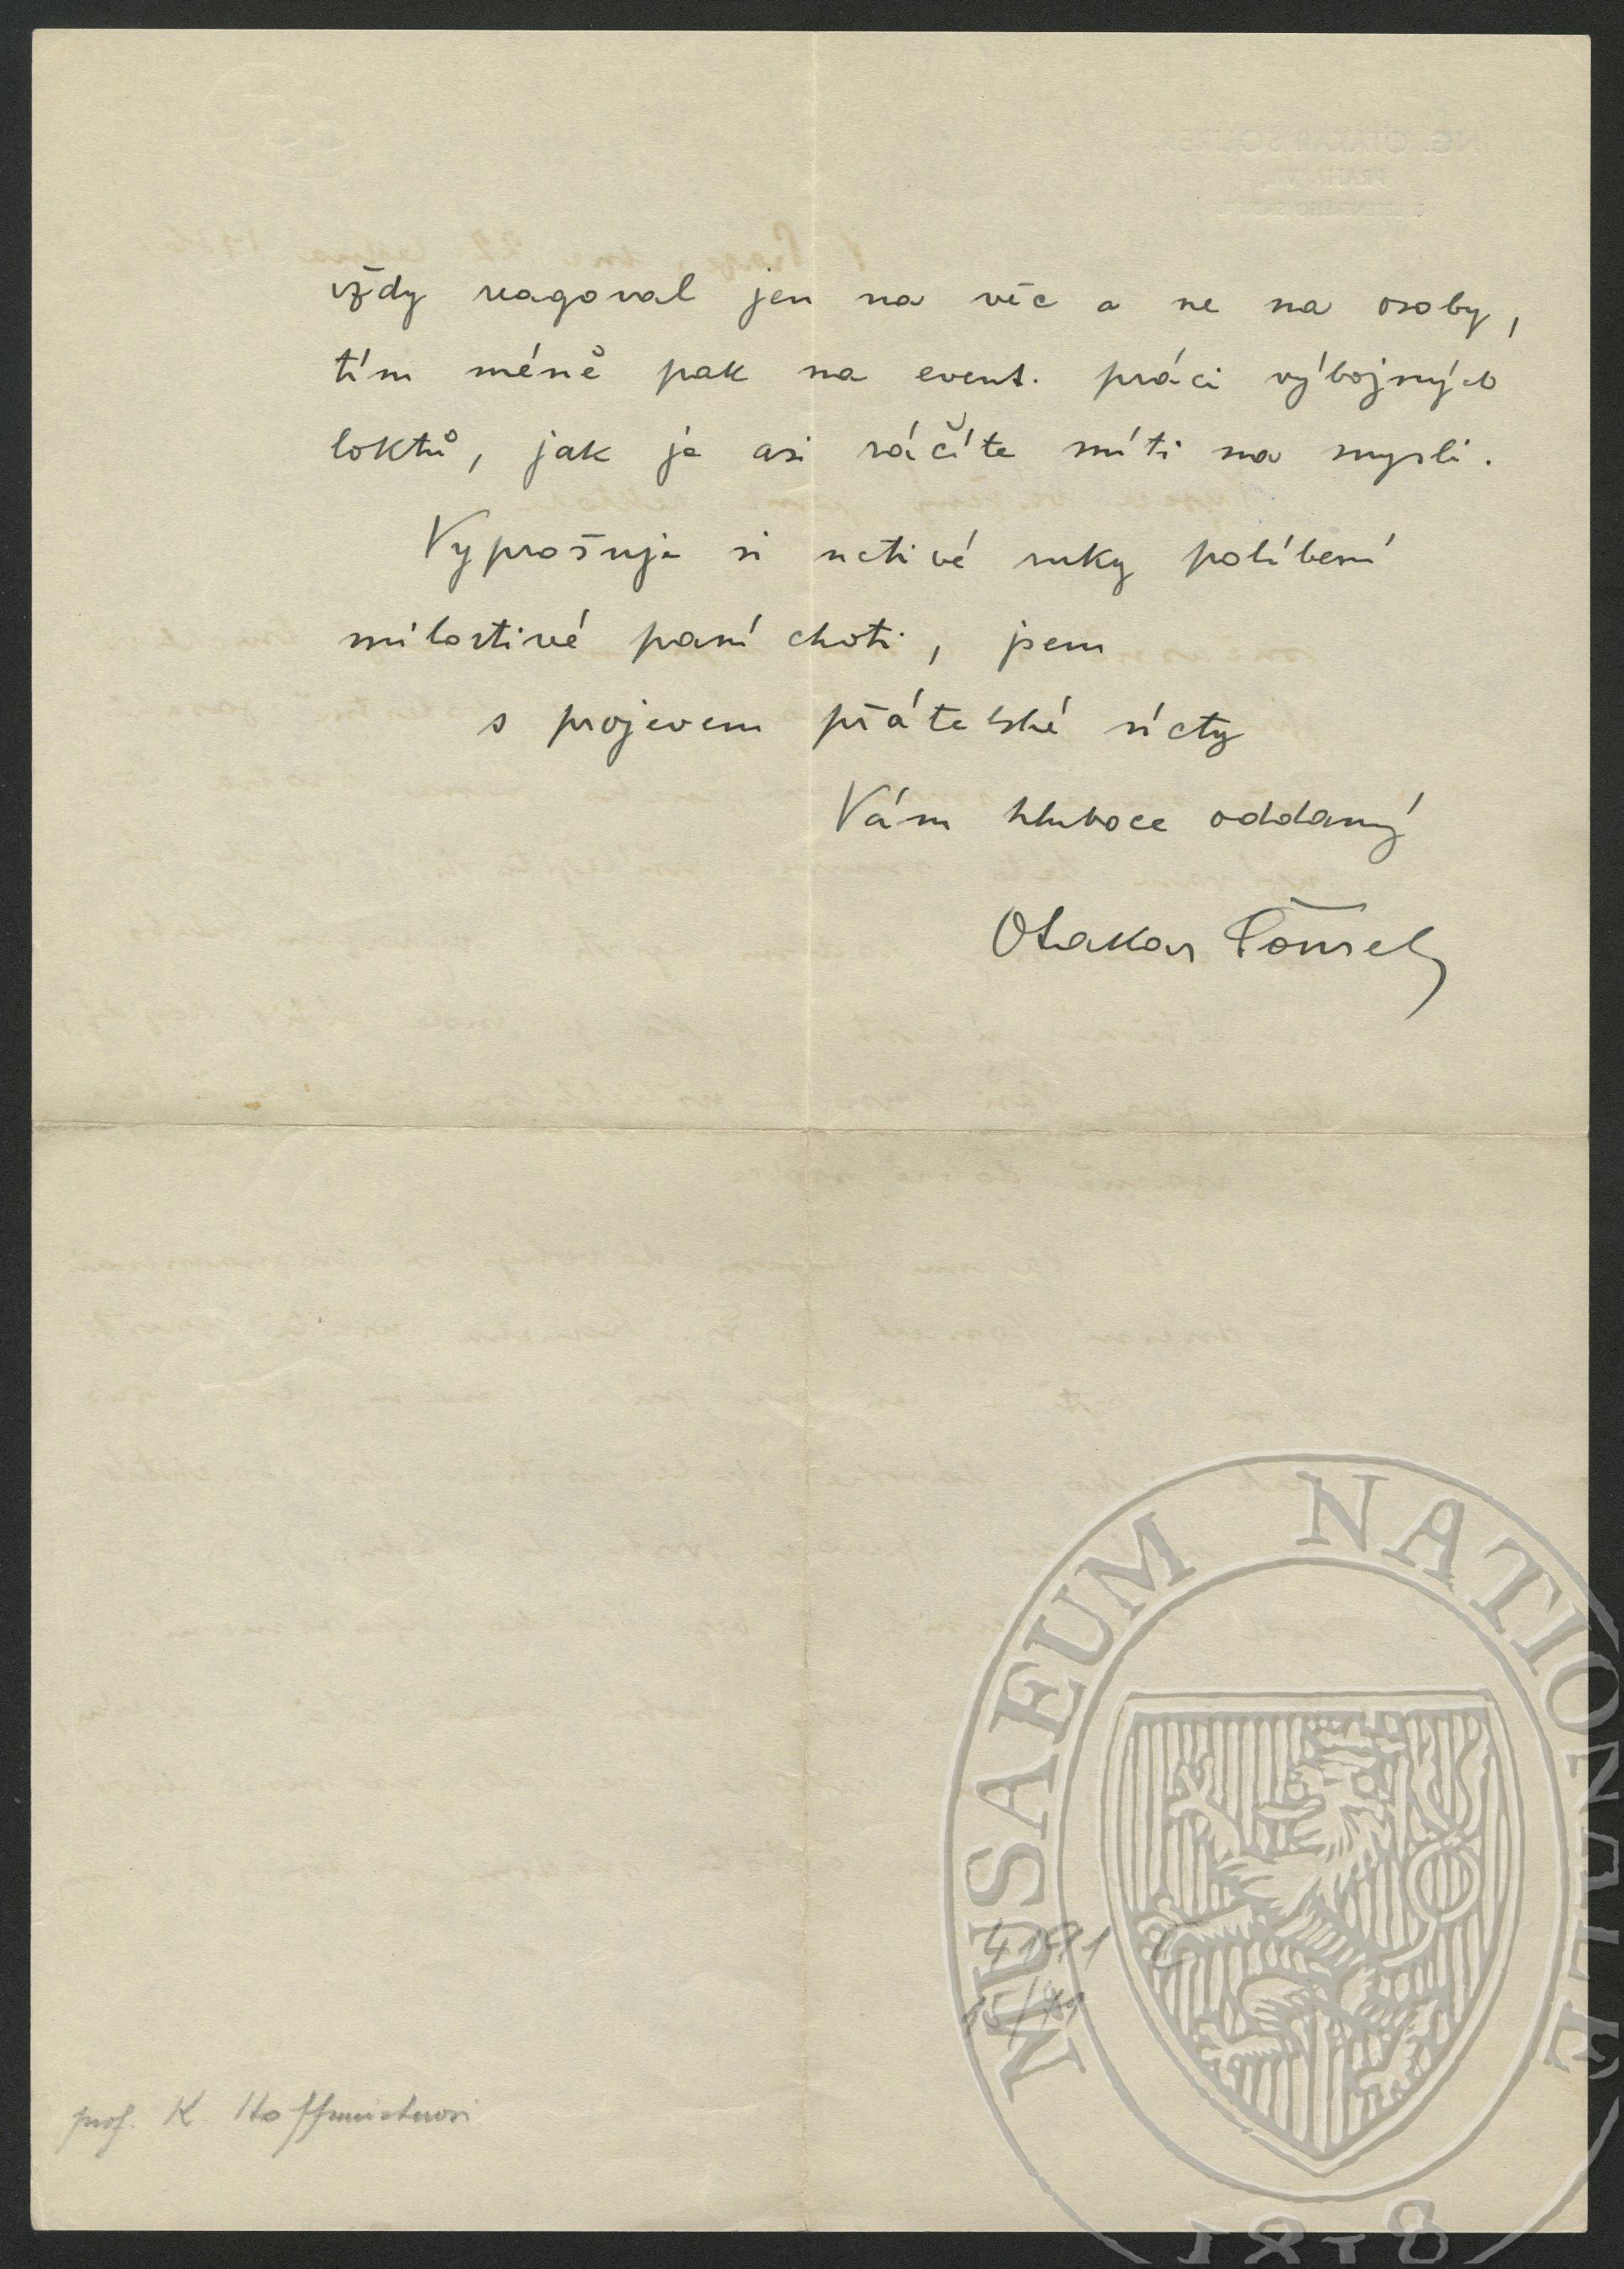 vždy reagoval jen na věc a ne na osoby,
tím méně pak na event. práci výbojných
loktů, jak je asi ráčíte míti na mysli.
Vyprošuje si uctivé ruky políbení
milostivé paní choti, jsem
s projevem přátelské úcty
Vám hluboce oddaný
Otakar Šourek
MUSAEUM NATIONALE
4191
15/
prof. K. Hoffmeisterovi
1818